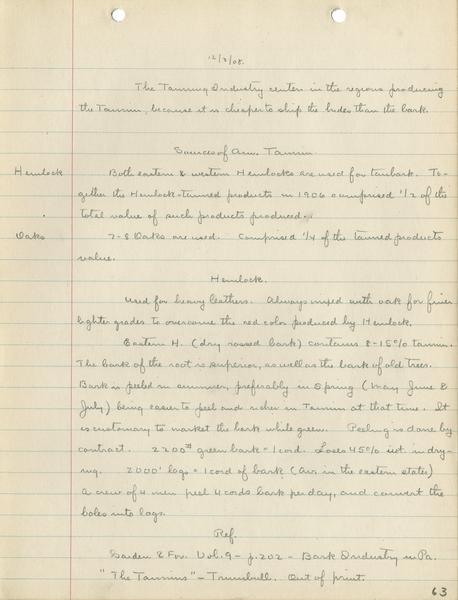 12/3/08.
The Tanning Industry centers in the regions producing
the Tannin, because it is cheaper to ship the hides than the bark.
Sources of Am. Tannin
Hemlock Both eastern & western Hemlocks are used for tanbark. To-
gether the Hemlock-tanned products in 1906 comprised 1/2 of the
total value of such products produced.
Oaks 7-8 Oaks are used. Comprised 1/4 of the tanned products
value.
Hemlock.
Used for heavy leathers. Always mixed with oak for finer
lighter grades to overcome the red color produced by Hemlock.
Eastern H. (dry rossed bark) contains 8-15% tannin.
The bark of the root is superior, as well as the bark of old trees.
Bark is peeled in summer, preferably in Spring (May June &
July) being easier to peel and richer in Tannin at that time. It
is customary to market the bark while green. Peeling is done by
contract. 2200# green bark = 1 cord. Loses 45% wt. in dry-
ing. 2000' logs = 1 cord of bark (Av. in the eastern states)
A crew of 4 men peel 4 cords bark per day, and convert the
boles into logs.
Ref.
Garden & For. Vol. 9 - p. 202 - Bark Industry in Pa.
"The Tannins" - Trumbull. Out of print.
63